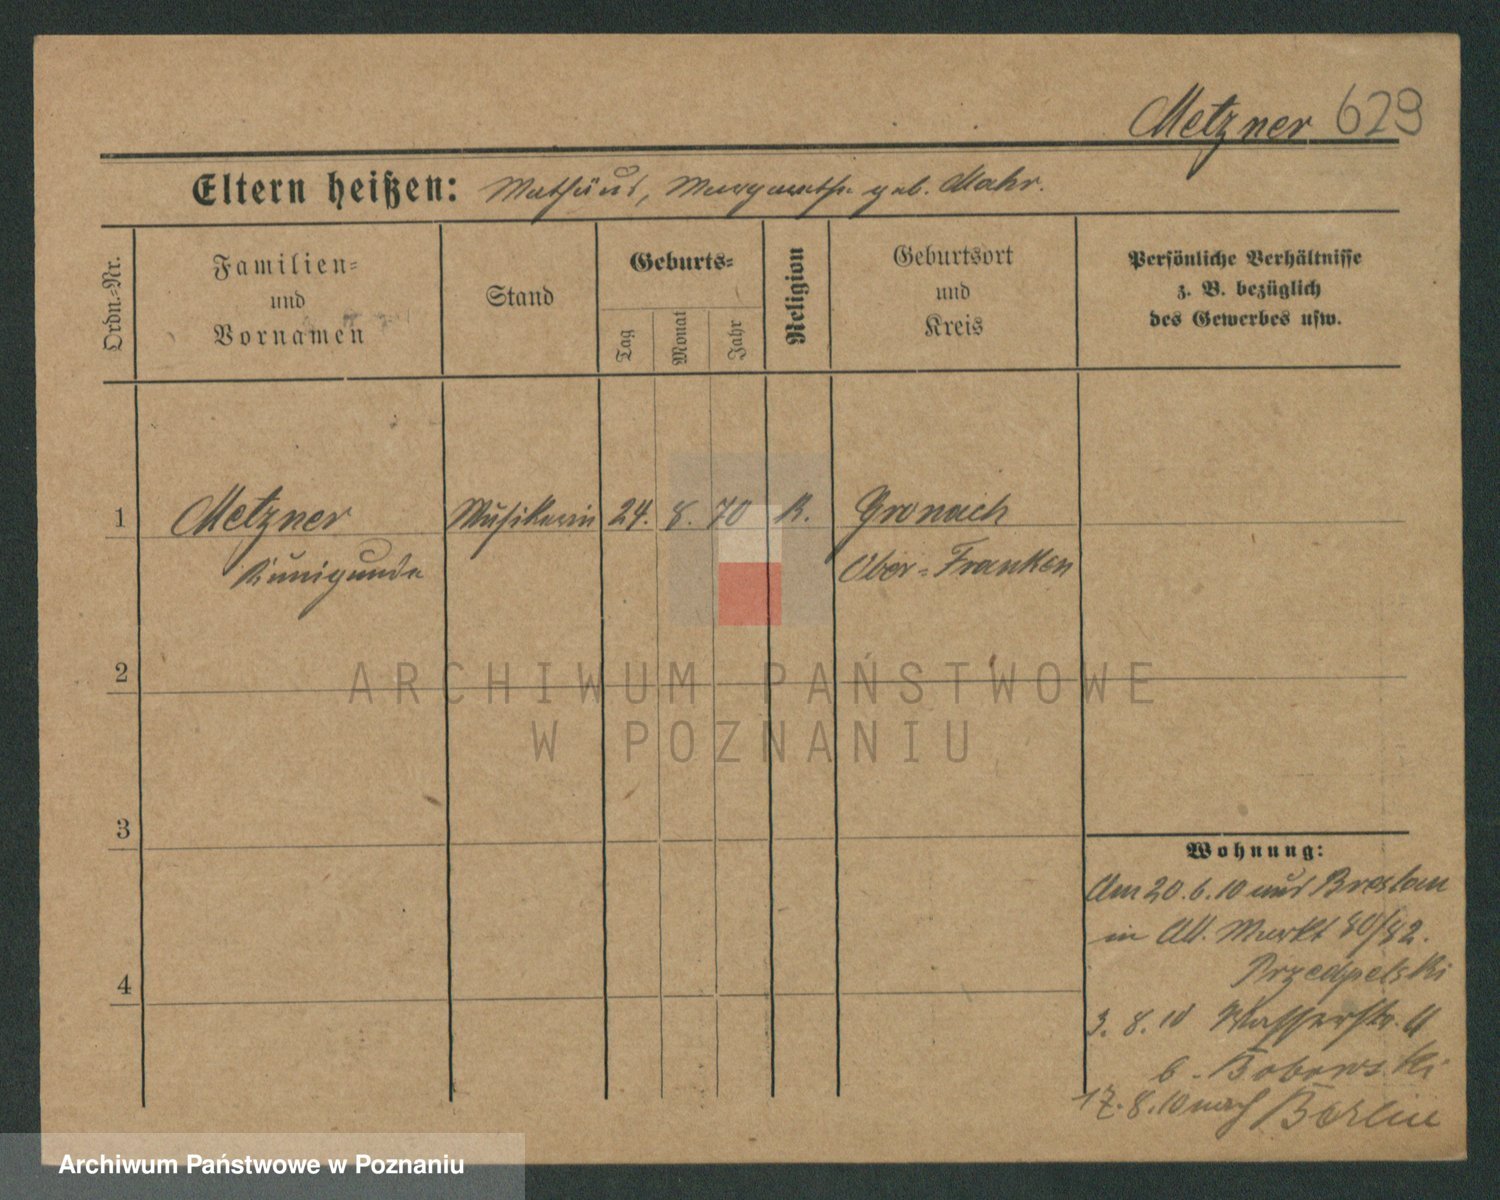 Metzner 629
Eltern heißen: Mathäus, Margarethe geb. Mahr.
Ordn.-Nr.
Familien-
und
Vornamen
Stand
Geburts-
Tag
Monat
Jahr
Religion
Geburtsort
und
Kreis
Persönliche Verhältnisse
z. B. bezüglich
des Gewerbes usw.
1 Metzner Musikerin 24. 8. 70 K. Gronach
Kunigunde Ober-Franken
2
ARCHIWUM PAŃSTWOWE
W POZNANIU
3
Wohnung:
Am 20.6.10 aus Breslau
in Alt. Markt 80/82.
Przedpelski
4
3. 8. 10 Wasserstr.
b. Bobowski
17.8.10 nach Berlin
Archiwum Państwowe w Poznaniu